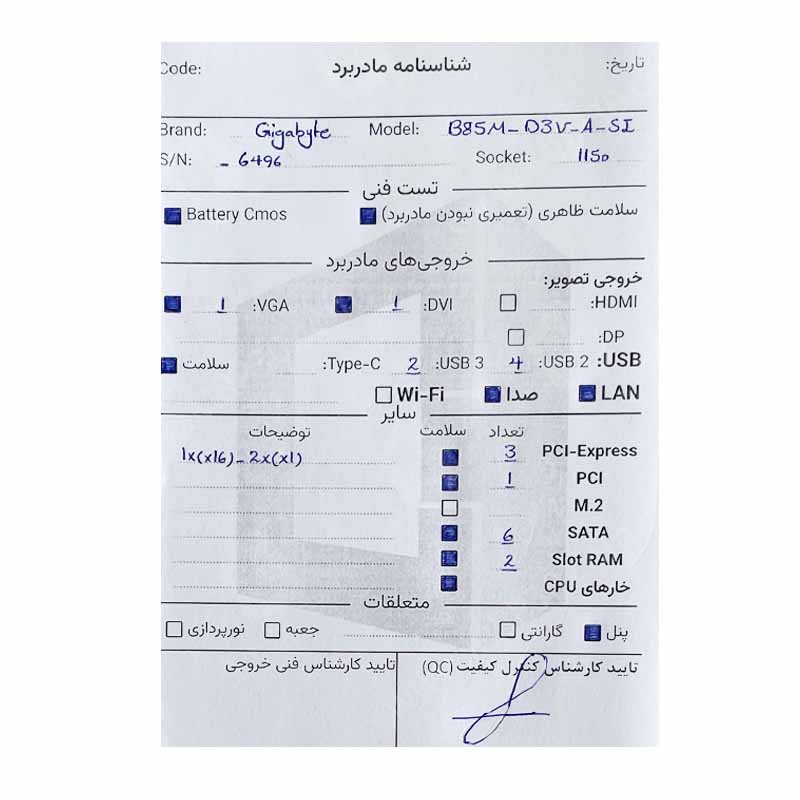 تاریخ: شناسنامه مادربرد Code:
Brand: Gigabyte Model: B85M-D3V-A-SI
S/N: - 6496 Socket: 1150
تست فنی
سلامت ظاهری (تعمیری نبودن مادربرد) Battery Cmos
خروجی‌های مادربرد
خروجی تصویر:
HDMI: DVI: 1 VGA: 1
DP:
USB: USB 2: 4 USB 3: 2 Type-C: سلامت
LAN صدا Wi-Fi
سایر
تعداد سلامت توضیحات
PCI-Express 3 1x(x16)_2x(x1)
PCI 1
M.2
SATA 6
Slot RAM 2
خارهای CPU
متعلقات
پنل گارانتی جعبه نورپردازی
تایید کارشناس کنترل کیفیت (QC) تایید کارشناس فنی خروجی